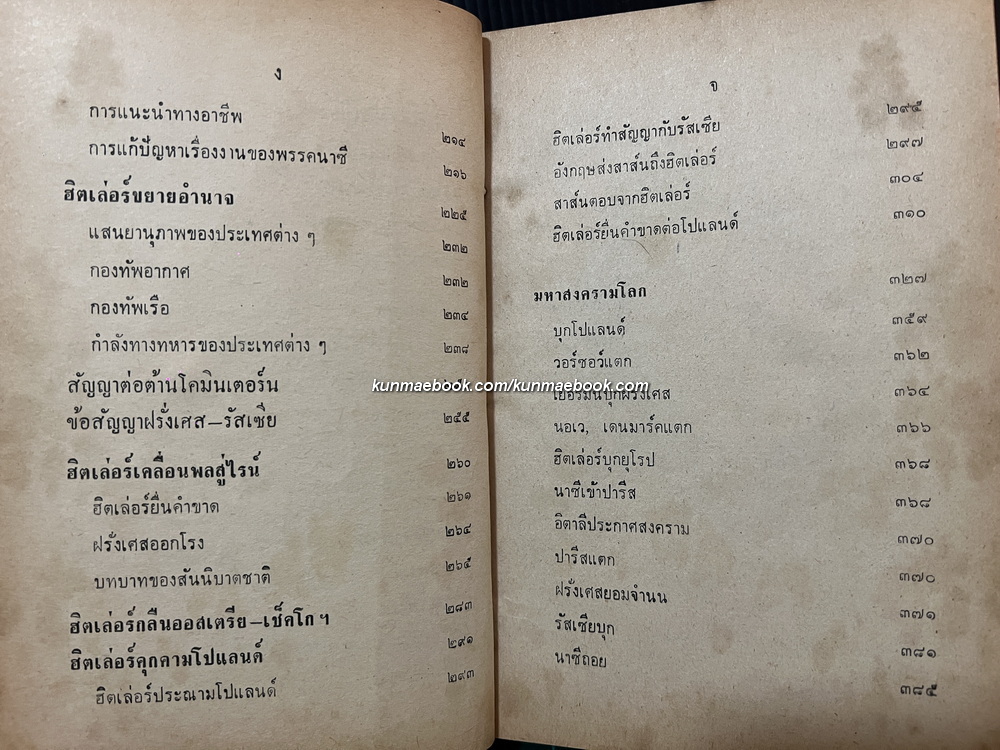 ง
การแนะนำทางอาชีพ ๒๑๔
การแก้ปัญหาเรื่องงานของพรรคนาซี ๒๑๖
ฮิตเล่อร์ขยายอำนาจ ๒๒๕
แสนยานุภาพของประเทศต่าง ๆ ๒๓๒
กองทัพอากาศ ๒๓๒
กองทัพเรือ ๒๓๔
กำลังทางทหารของประเทศต่าง ๆ ๒๓๘
สัญญาต่อต้านโคมินเตอร์น
ข้อสัญญาฝรั่งเศส—รัสเซีย ๒๕๕
ฮิตเล่อร์เคลื่อนพลสู่ไรน์ ๒๖๐
ฮิตเล่อร์ยื่นคำขาด ๒๖๑
ฝรั่งเศสออกโรง ๒๖๔
บทบาทของสันนิบาตชาติ ๒๖๕
ฮิตเล่อร์กลืนออสเตรีย—เช็คโกฯ ๒๘๓
ฮิตเล่อร์คุกคามโปแลนด์ ๒๙๑
ฮิตเล่อร์ประณามโปแลนด์ ๒๙๓
จ
ฮิตเล่อร์ทำสัญญากับรัสเซีย ๒๙๕
อังกฤษส่งสาส์นถึงฮิตเล่อร์ ๒๙๗
สาส์นตอบจากฮิตเล่อร์ ๓๐๔
ฮิตเล่อร์ยื่นคำขาดต่อโปแลนด์ ๓๑๐
มหาสงครามโลก ๓๒๗
บุกโปแลนด์ ๓๕๙
วอร์ซอว์แตก ๓๖๒
เยอรมันบุกฝรั่งเศส ๓๖๔
นอเว, เดนมาร์คแตก ๓๖๖
ฮิตเล่อร์บุกยุโรป ๓๖๘
นาซีเข้าปารีส ๓๖๘
อิตาลีประกาศสงคราม ๓๗๐
ปารีสแตก ๓๗๐
ฝรั่งเศสยอมจำนน ๓๗๑
รัสเซียบุก ๓๘๑
นาซีถอย ๓๘๕
kunmaebook.com/kunmaebook.com